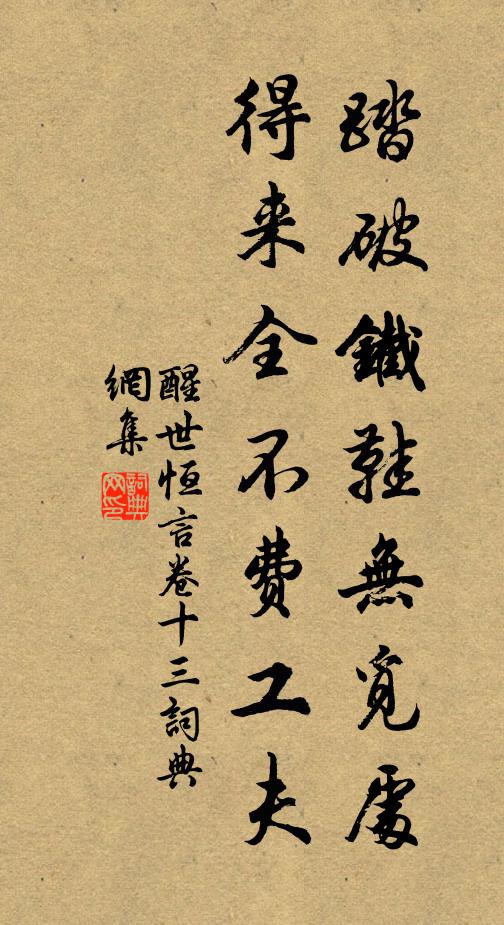 踏破鐵鞋無覓處
得来全不費工夫
醒世恒言卷十三詞典
網集
詞典網印